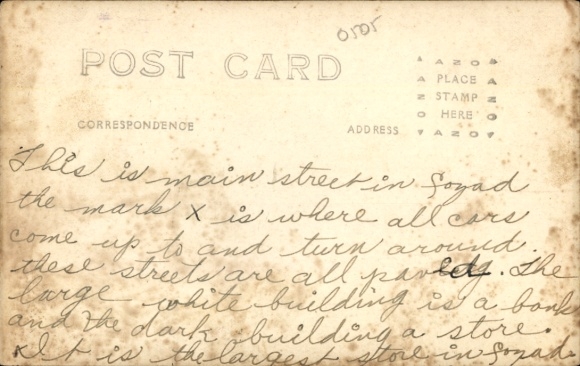 ororr
POST CARD
AZO
PLACE
STAMP
HERE
AZO
CORRESPONDENCE
ADDRESS
This is main street in Sozad
the mark X is where all cars
come up to and turn around.
these streets are all paved. The
large white building is a bank
and the dark building a store.
x It is the largest store in Sozad.